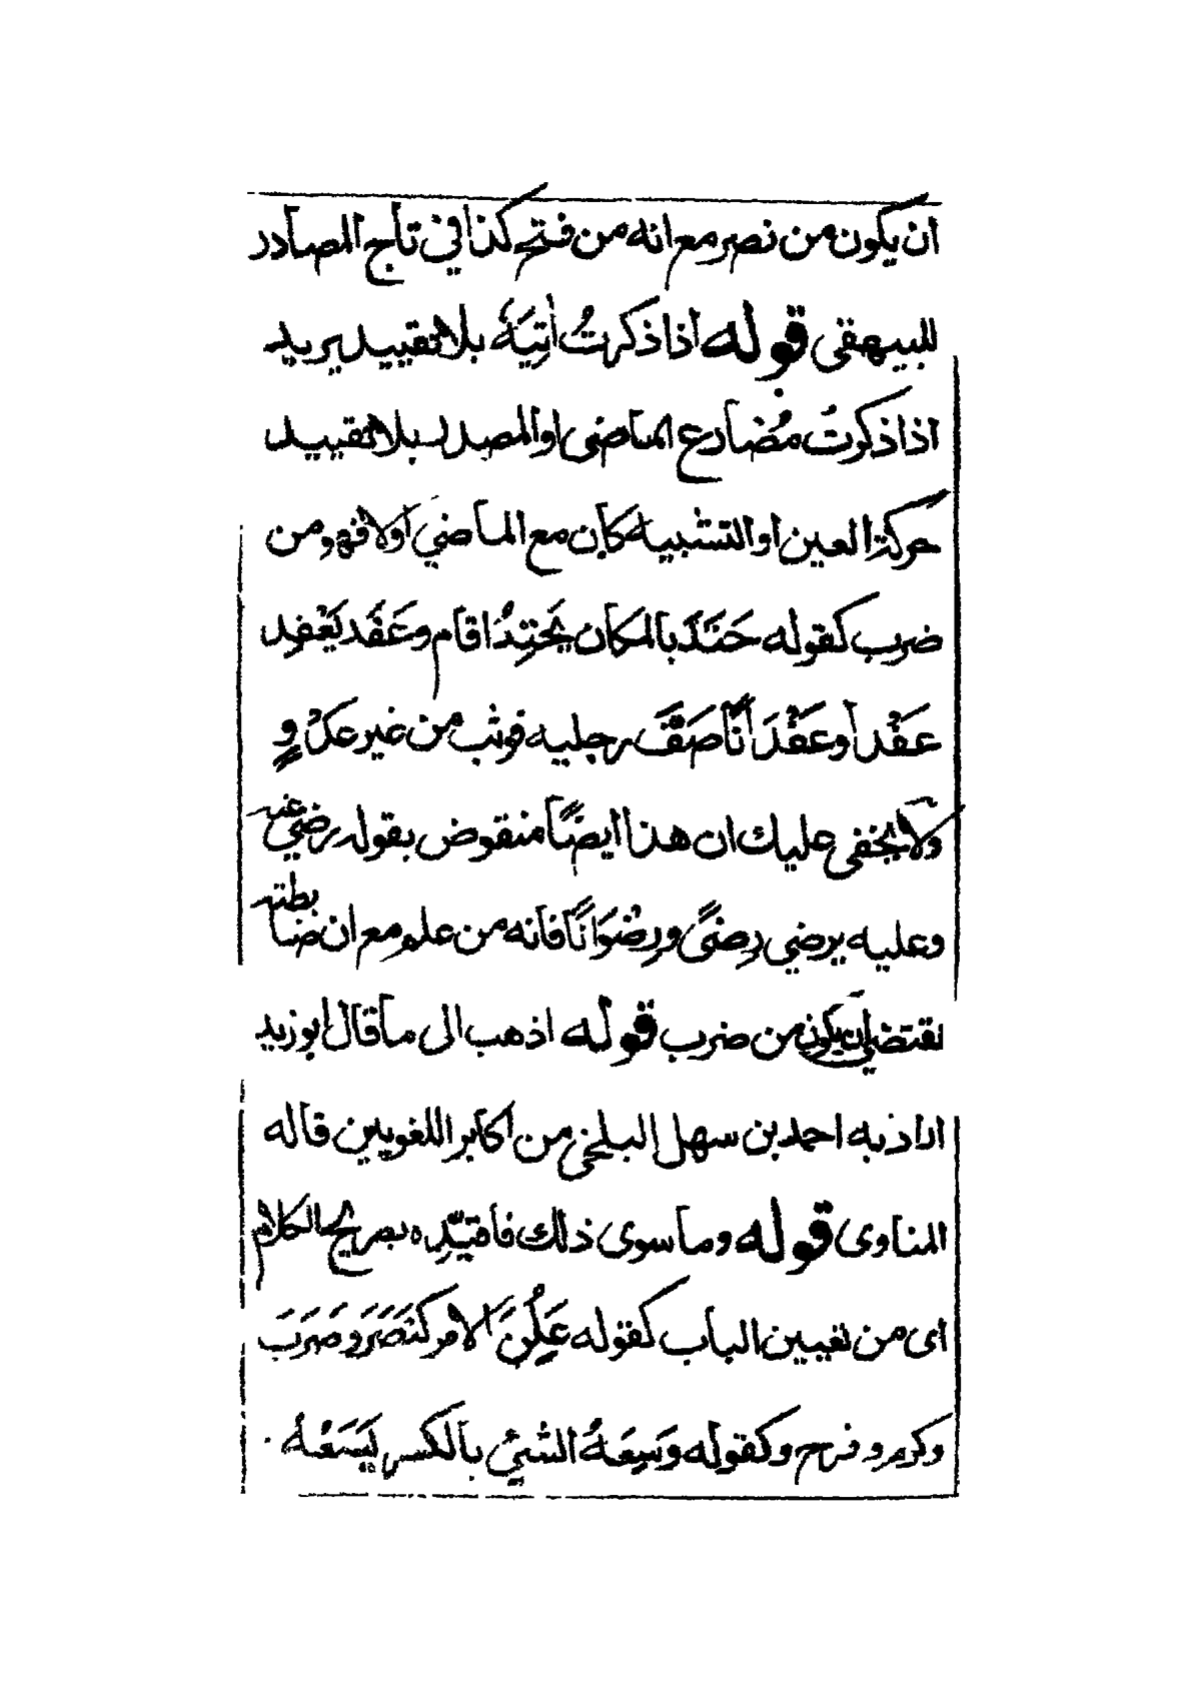 ان يكون من نصر مع انه من فتح كذا في تاج المصادر
للبيهقى قوله اذا ذكرتُ اٰتِيَهُ بلا تقييد يريد
اذا ذكرتُ مُضارع الماضى او المصدر بلا تقييد
حركة العين او التشبيه كان مع الماضي اولا فهو من
ضرب كقوله حَتَدَ بالمكان يَحْتِدُ اقام وعَفَد يَعْفِد
عَفْدا وعَفَدَانًا صَفَّ رجليه فوثب من غير عَدْوٍ
ولا يخفى عليك ان هذا ايضًا منقوض بقوله رضي عنه
وعليه يرضي رِضىً ورِضْوَانًا فانه من علم مع ان ضابطته
تقتضي ان يكون من ضرب قوله اذهب الى ما قال ابو زيد
اراد به احمد بن سهل البلخي من اكابر اللغويين قاله
المناوى قوله وما سوى ذلك فاقيّدِه بصريح الكلام
اى من تعيين الباب كقوله عَلَِنَُ الامر كنَصَرَ وضَرَبَ
وكرم وفرح وكقوله وَسِعَهُ الشيْئ بالكسر يَسَعُهُ